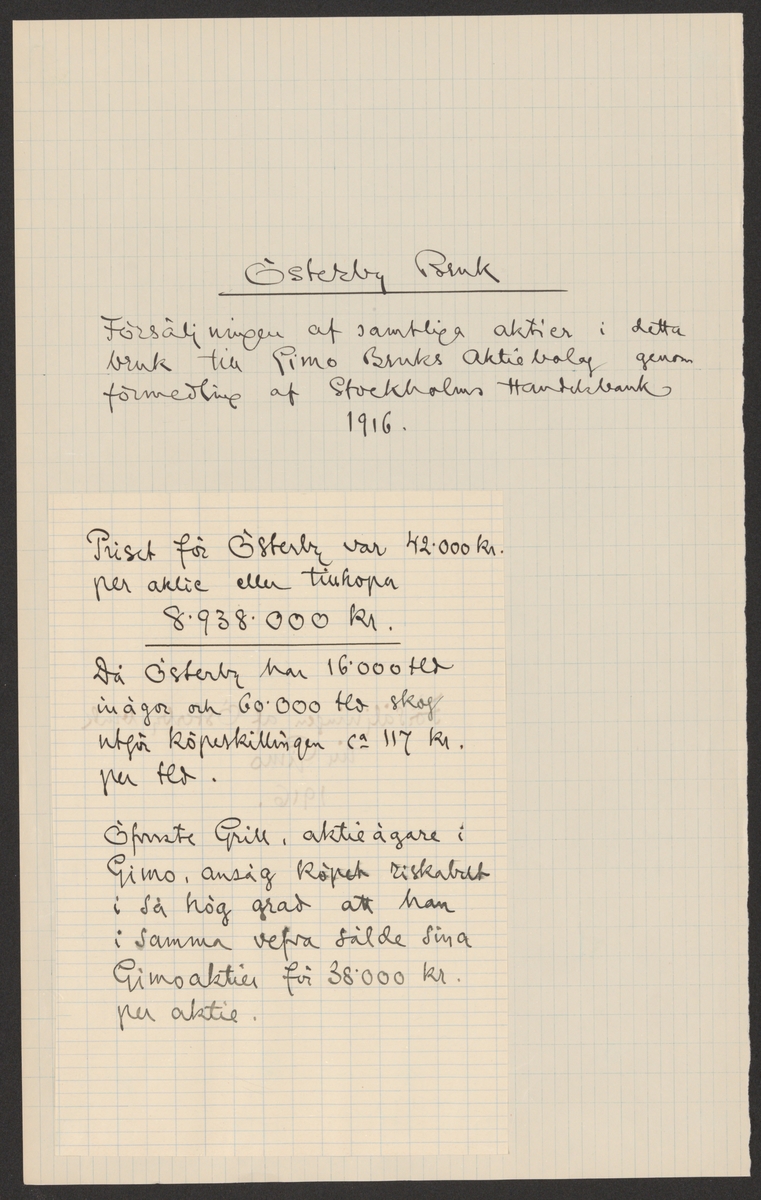 Österby Bruk
Försäljningen af samtliga aktier i detta
bruk till Gimo Bruks Aktiebolag genom
förmedling af Stockholms Handelsbank
1916.
Priset för Österby var 42·000 kr.
per aktie eller tillhopa
8·938·000 kr.
Då Österby har 16·000 tld
inägor och 60·000 tld skog
utgör köpeskillingen ca 117 kr.
per tld.
Öfverste Grill, aktieägare i
Gimo, ansåg köpet riskabelt
i så hög grad att han
i samma vefva sålde sina
Gimoaktier för 38·000 kr.
per aktie.